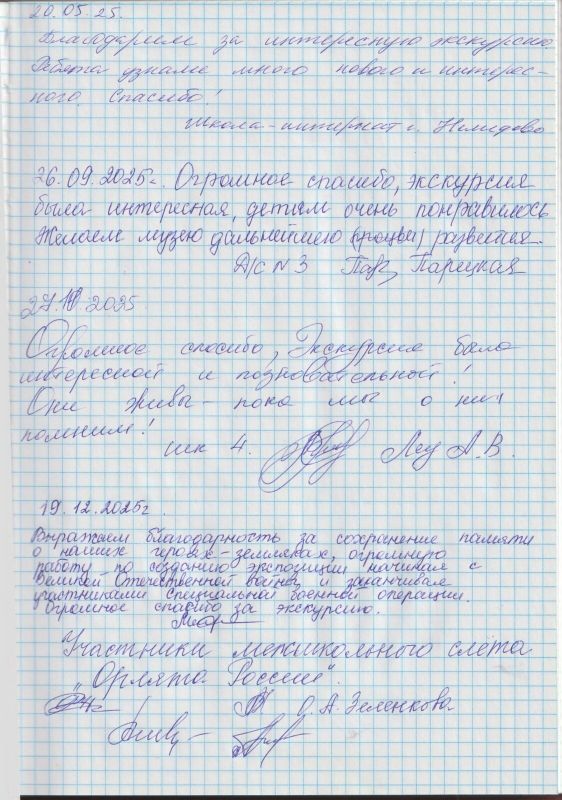 20.05.25.
Благодарим за интересную экскурсию.
Ребята узнали много нового и интерес-
ного. Спасибо!
Школа-интернат г. Нелидово
26.09.2025г. Огромное спасибо, экскурсия
была интересная, детям очень понравилось
Желаем музею дальнейшего (процвет) развития.
Д/с №3 Парицкая
27.10.2025
Огромное спосибо, Экскурсия была
интересной и позновательной!
Они живы - пока мы о них
помним!
шк 4. А.В.
19.12.2025г
Выражаем благодарность за сохранение памяти
о наших героях-земляках, огромную
работу по созданию экспозиции начиная с
Великой Отечественной войны и заканчивая
участниками специальной военной операции.
Огромное спасибо за экскурсию.
Участники межшкольного слёта
"Орлята России".
О.А. Зеленкова